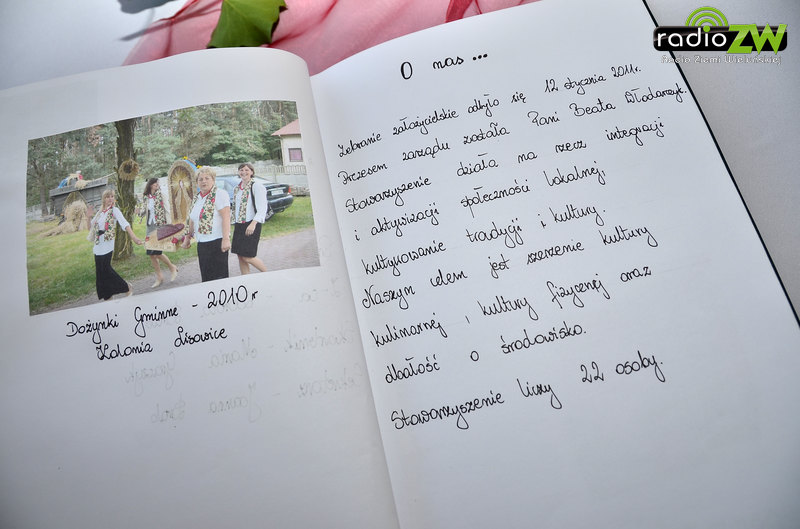 radioZW
Radio Ziemi Wieluńskiej
Dożynki Gminne - 2010 r
Kolonia Lisowice
O nas...
Zebranie założycielskie odbyło się 12 stycznia 2011r.
Prezesem zarządu została Pani Beata Włodarczyk.
Stowarzyszenie działa na rzecz integracji
i aktywizacji społeczności lokalnej,
kultywowanie tradycji i kultury.
Naszym celem jest szerzenie kultury
kulinarnej, kultury fizycznej oraz
dbałość o środowisko.
Stowarzyszenie liczy 22 osoby.